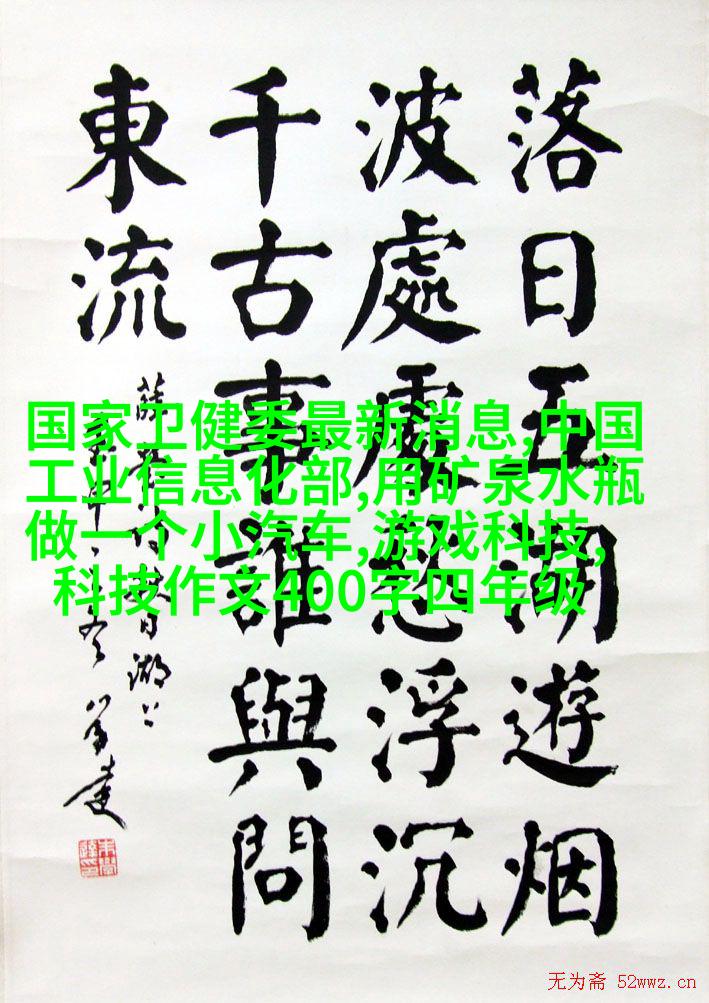 落日五湖遊烟
波處處愁浮沉
千古事誰與問
東流
薛瑩秋日湖上
国家卫健委最新消息,中国
工业信息化部,用矿泉水瓶
做一个小汽车,游戏科技,
科技作文400字四年级
无为斋 52wwz.cn